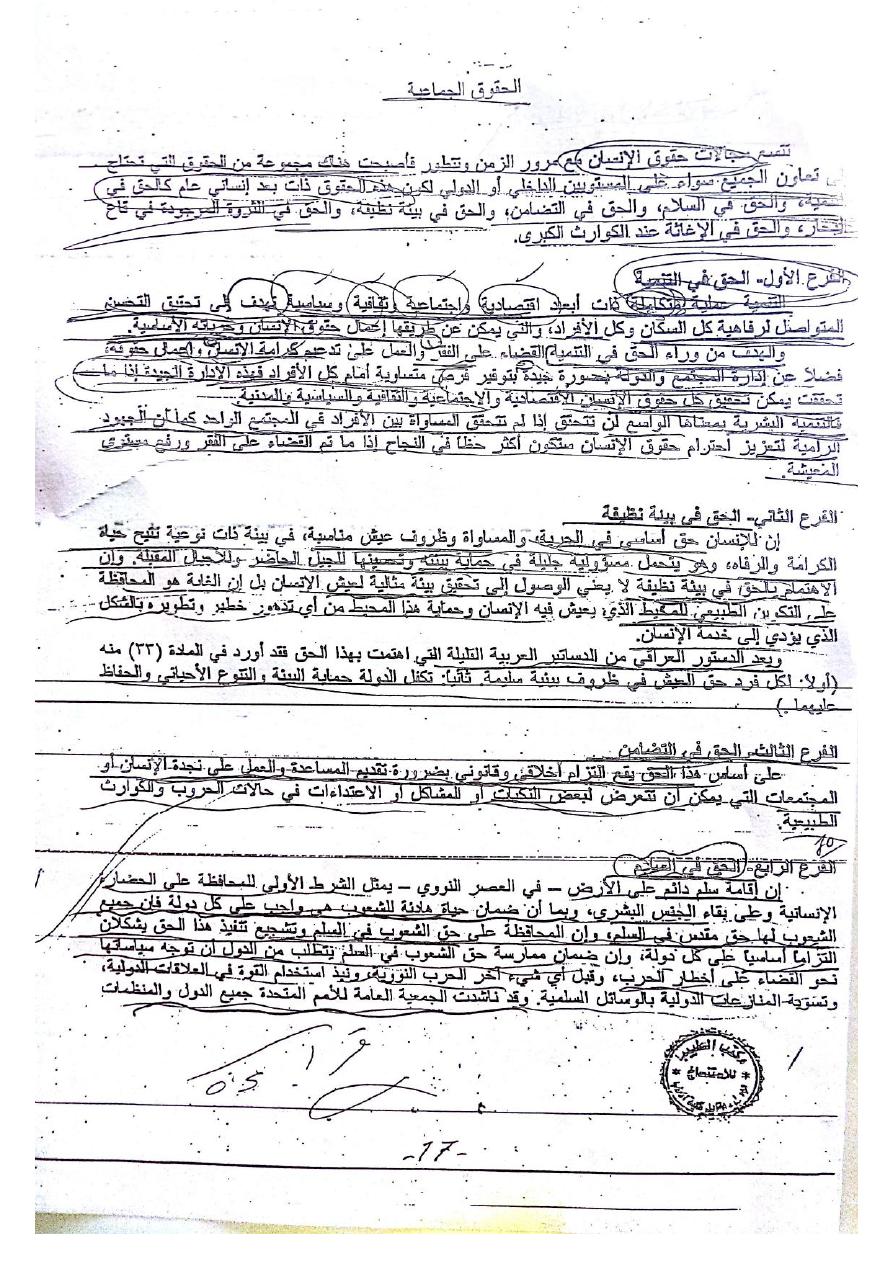 الحقوق الجماعية
تتسع مجالات حقوق الإنسان مع مرور الزمن وتتطور فأصبحت هناك مجموعة من الحقوق التي تحتاج
تعاون الجميع سواء على المستويين الداخلي أو الدولي لكون هذه الحقوق ذات بعد إنساني عام كالحق في
والحق في السلام، والحق في التضامن، والحق في بيئة نظيفة، والحق في الثروة الموجودة في قاع
والحق في الإغاثة عند الكوارث الكبرى.
الفرع الأول- الحق في التنمية
التنمية عملية متكاملة ذات أبعاد اقتصادية واجتماعية وثقافية وسياسية تهدف إلى تحقيق التحسن
المتواصل لرفاهية كل السكان وكل الأفراد، والتي يمكن عن طريقها إعمال حقوق الإنسان وحرياته الأساسية.
والهدف من وراء الحق في التنمية القضاء على الفقر والعمل على تدعيم كرامة الإنسان وإعمال حقوقه،
فضلاً عن إدارة المجتمع والدولة بصورة جيدة بتوفير فرص متساوية أمام كل الأفراد فهذه الإدارة الجيدة إذا ما
تحققت يمكن تحقيق كل حقوق الإنسان الاقتصادية والاجتماعية والثقافية والسياسية والمدنية.
فالتنمية البشرية بمعناها الواسع لن تتحقق إذا لم تتحقق المساواة بين الأفراد في المجتمع الواحد كما أن الجهود
الرامية لتعزيز احترام حقوق الإنسان ستكون أكثر حظاً في النجاح إذا ما تم القضاء على الفقر ورفع مستوى
المعيشة.
الفرع الثاني- الحق في بيئة نظيفة
إن للإنسان حق أساسي في الحرية، والمساواة وظروف عيش مناسبة، في بيئة ذات نوعية تتيح حياة
الكرامة والرفاه، وهو يتحمل مسؤولية جليلة في حماية بيئته وتحسينها للجيل الحاضر وللأجيال المقبلة. وإن
الاهتمام بالحق في بيئة نظيفة لا يعني الوصول إلى تحقيق بيئة مثالية لعيش الإنسان بل إن الغاية هو المحافظة
على التكوين الطبيعي للمحيط الذي يعيش فيه الإنسان وحماية هذا المحيط من أي تدهور خطير وتطويره بالشكل
الذي يؤدي إلى خدمة الإنسان.
ويعد الدستور العراقي من الدساتير العربية القليلة التي اهتمت بهذا الحق فقد أورد في المادة (٣٣) منه
(أولاً: لكل فرد حق العيش في ظروف بيئية سليمة. ثانياً: تكفل الدولة حماية البيئة والتنوع الأحيائي والحفاظ
عليهما.)
الفرع الثالث- الحق في التضامن
على أساس هذا الحق يقع التزام أخلاقي وقانوني بضرورة تقديم المساعدة والعمل على نجدة الإنسان أو
المجتمعات التي يمكن أن تتعرض لبعض النكبات أو المشاكل أو الاعتداءات في حالات الحروب والكوارث
الطبيعية.
الفرع الرابع- الحق في السلام
إن إقامة سلم دائم على الأرض – في العصر النووي – يمثل الشرط الأولى للمحافظة على الحضارة
الإنسانية وعلى بقاء الجنس البشري، وبما أن ضمان حياة هادئة للشعوب هي واجب على كل دولة فإن جميع
الشعوب لها حق مقدس في السلم، وإن المحافظة على حق الشعوب في السلم وتشجيع تنفيذ هذا الحق يشكلان
التزاماً أساسياً على كل دولة، وإن ضمان ممارسة حق الشعوب في السلم يتطلب من الدول أن توجه سياساتها
نحو القضاء على أخطار الحرب، وقبل أي شيء آخر الحرب النووية، ونبذ استخدام القوة في العلاقات الدولية،
وتسوية المنازعات الدولية بالوسائل السلمية. وقد ناشدت الجمعية العامة للأمم المتحدة جميع الدول والمنظمات
مكتب الطيب
للاستنساخ
-17-